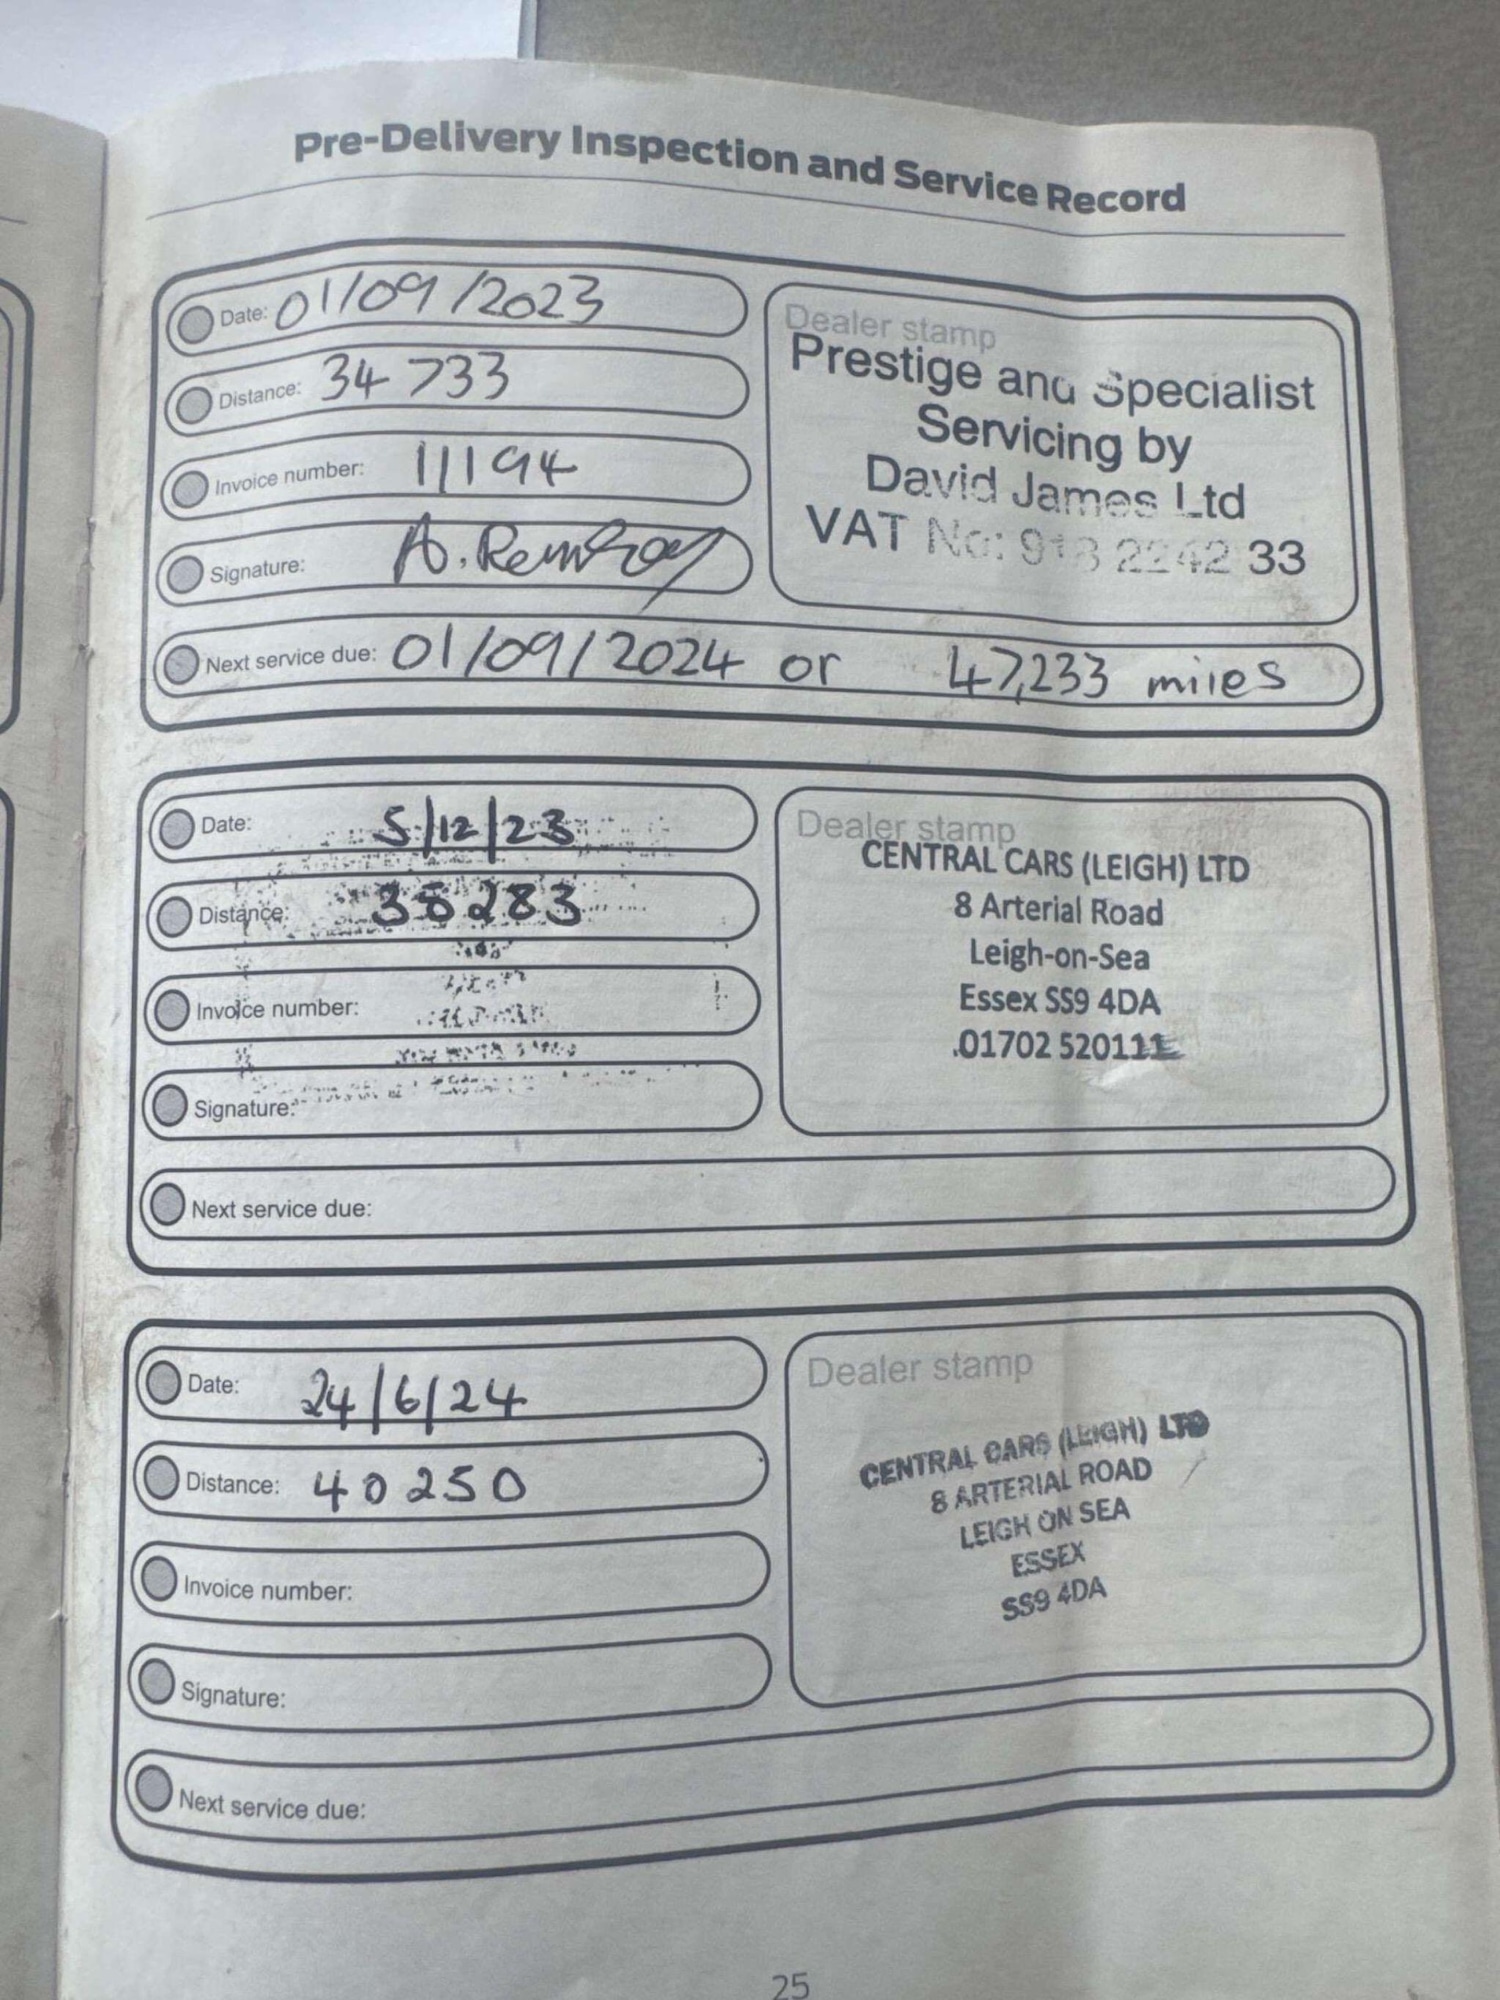 Pre-Delivery Inspection and Service Record
Date: 01/09/2023
Distance: 34733
Invoice number: 11194
Signature: A.
Next service due: 01/09/2024 or 47,233 miles
Dealer stamp
Prestige and Specialist
Servicing by
David James Ltd
VAT No: 918 2242 33
Date: 5/12/23
Distance: 283
Invoice number:
Signature:
Next service due:
Dealer stamp
CENTRAL CARS (LEIGH) LTD
8 Arterial Road
Leigh-on-Sea
Essex SS9 4DA
01702 520111
Date: 24/6/24
Distance: 40250
Invoice number:
Signature:
Next service due:
Dealer stamp
CENTRAL CARS (LEIGH) LTD
8 ARTERIAL ROAD
LEIGH ON SEA
ESSEX
SS9 4DA
25